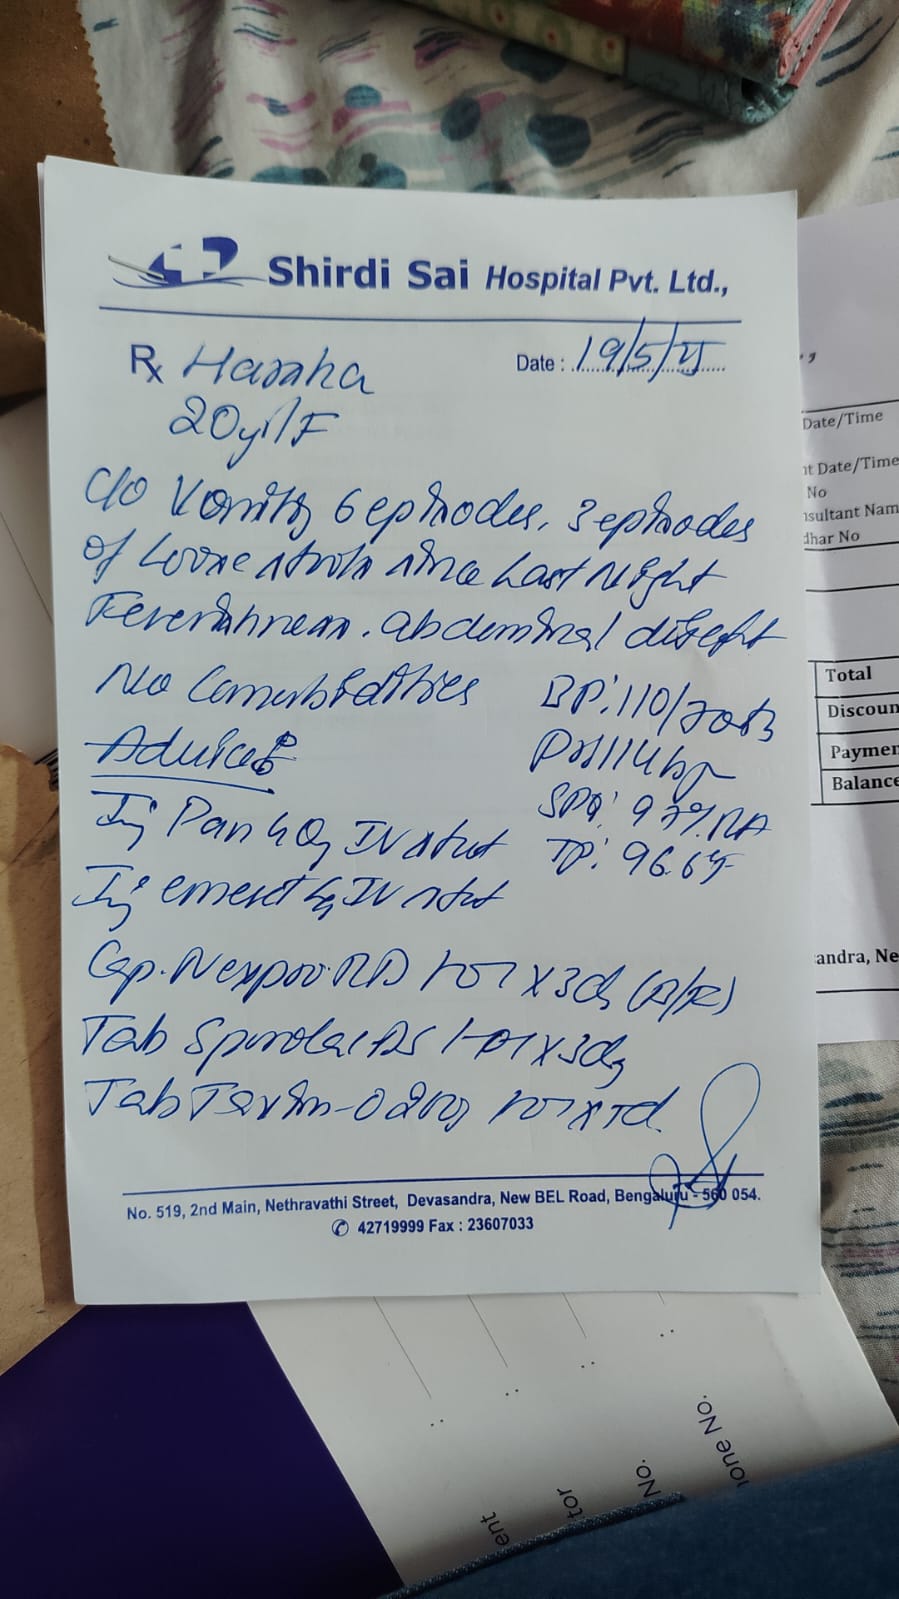 Shirdi Sai Hospital Pvt. Ltd.,
Rx Harsha
Date : 19/5/25
20yr/F
C/o Vomiting 6 episodes, 3 episodes
of Loose stools since Last Night
Feverishness. abdominal
No Comorbidities
BP: 110/70
Advice
PR 114 bpm
SPO2: 97% RA
Inj Pan 40 IV stat
TP: 96.6F
Inj emeset 4 IV stat
Cap. Nexpro RD 1-0-1 x 3d (B/F)
Tab DS 1-0-1 x 3d
Tab Taxim-O 200 1-0-1 x
No. 519, 2nd Main, Nethravathi Street, Devasandra, New BEL Road, Bengaluru - 560 054.
✆ 42719999 Fax : 23607033
Date/Time
t Date/Time
No
nsultant Nam
dhar No
Total
Discoun
Paymen
Balance
andra, Ne
ent
tor
No.
one No.